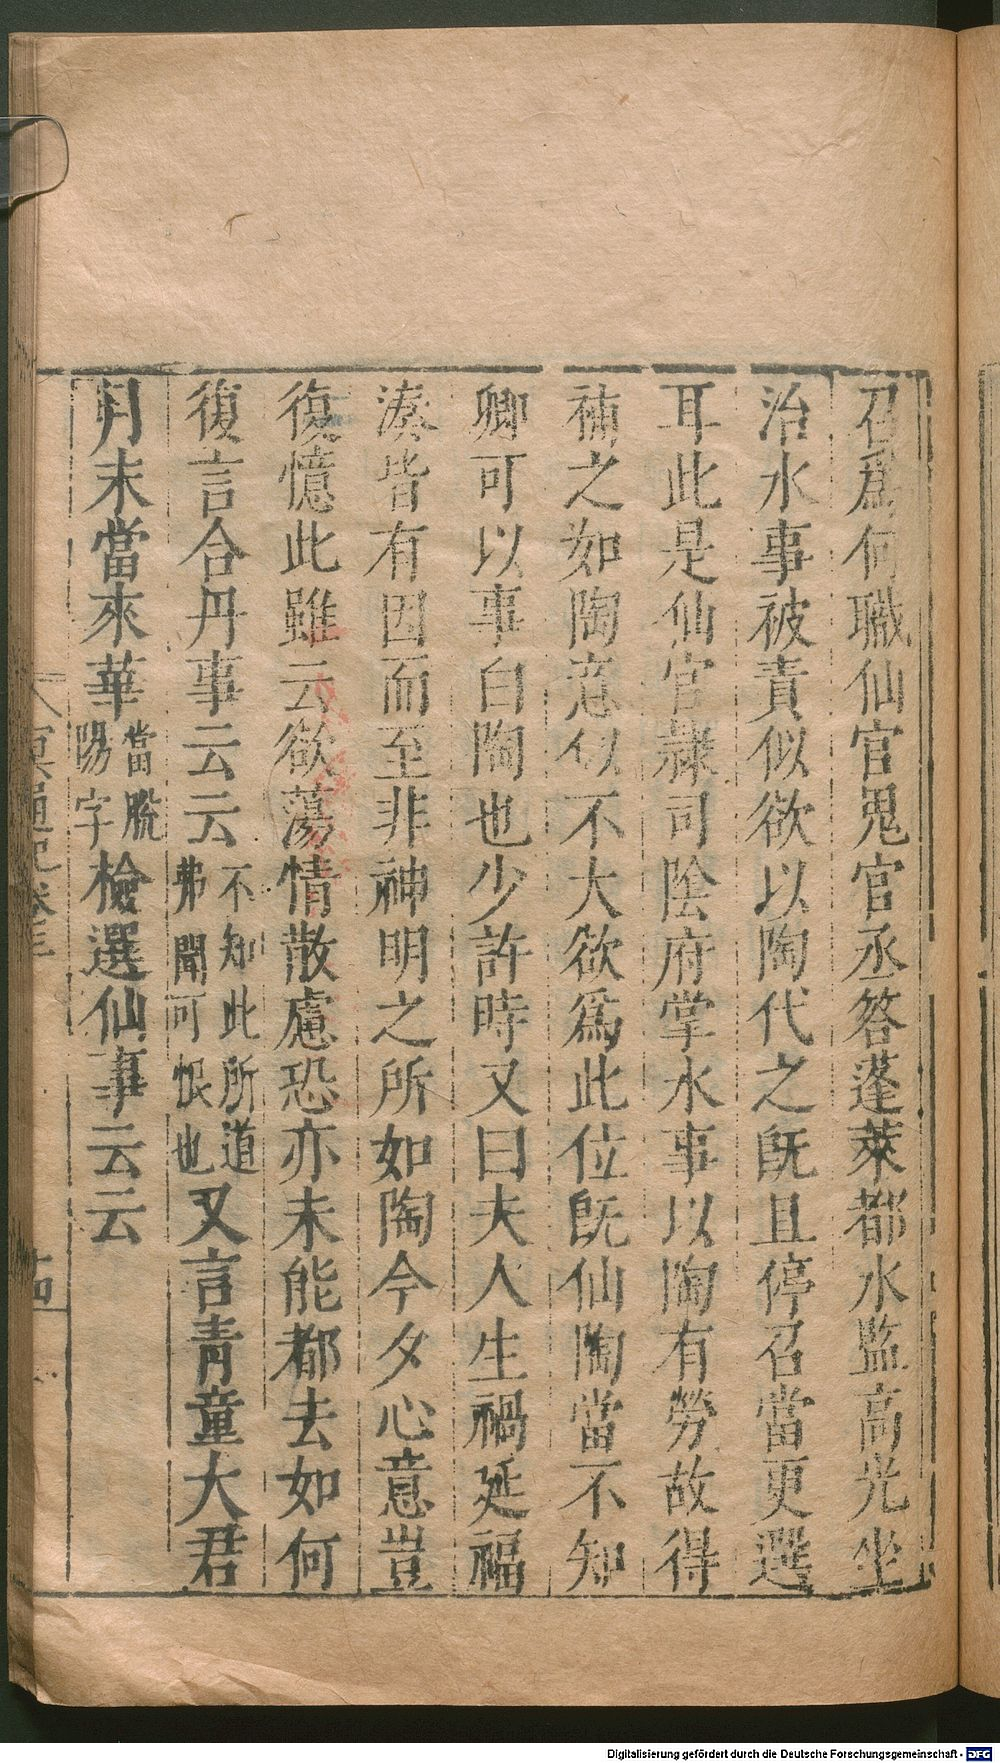 召為何職仙官鬼官丞答蓬萊都水監高光坐
治水事被責似欲以陶代之既且停召當更選
耳此是仙官隸司陰府掌水事以陶有勞故得
補之如陶意似不大欲為此位既仙陶當不知
卿可以事白陶也少許時又曰夫人生禍延福
湊皆有因而至非神明之所如陶今夕心意豈
復憶此雖云欲蕩情散慮恐亦未能都去如何
復言合丹事云云不知此所道弗聞可恨也又言青童大君
月末當來華當脫陽字檢選仙事云云
冥通記卷三
十四
Digitalisierung gefördert durch die Deutsche Forschungsgemeinschaft - DFG